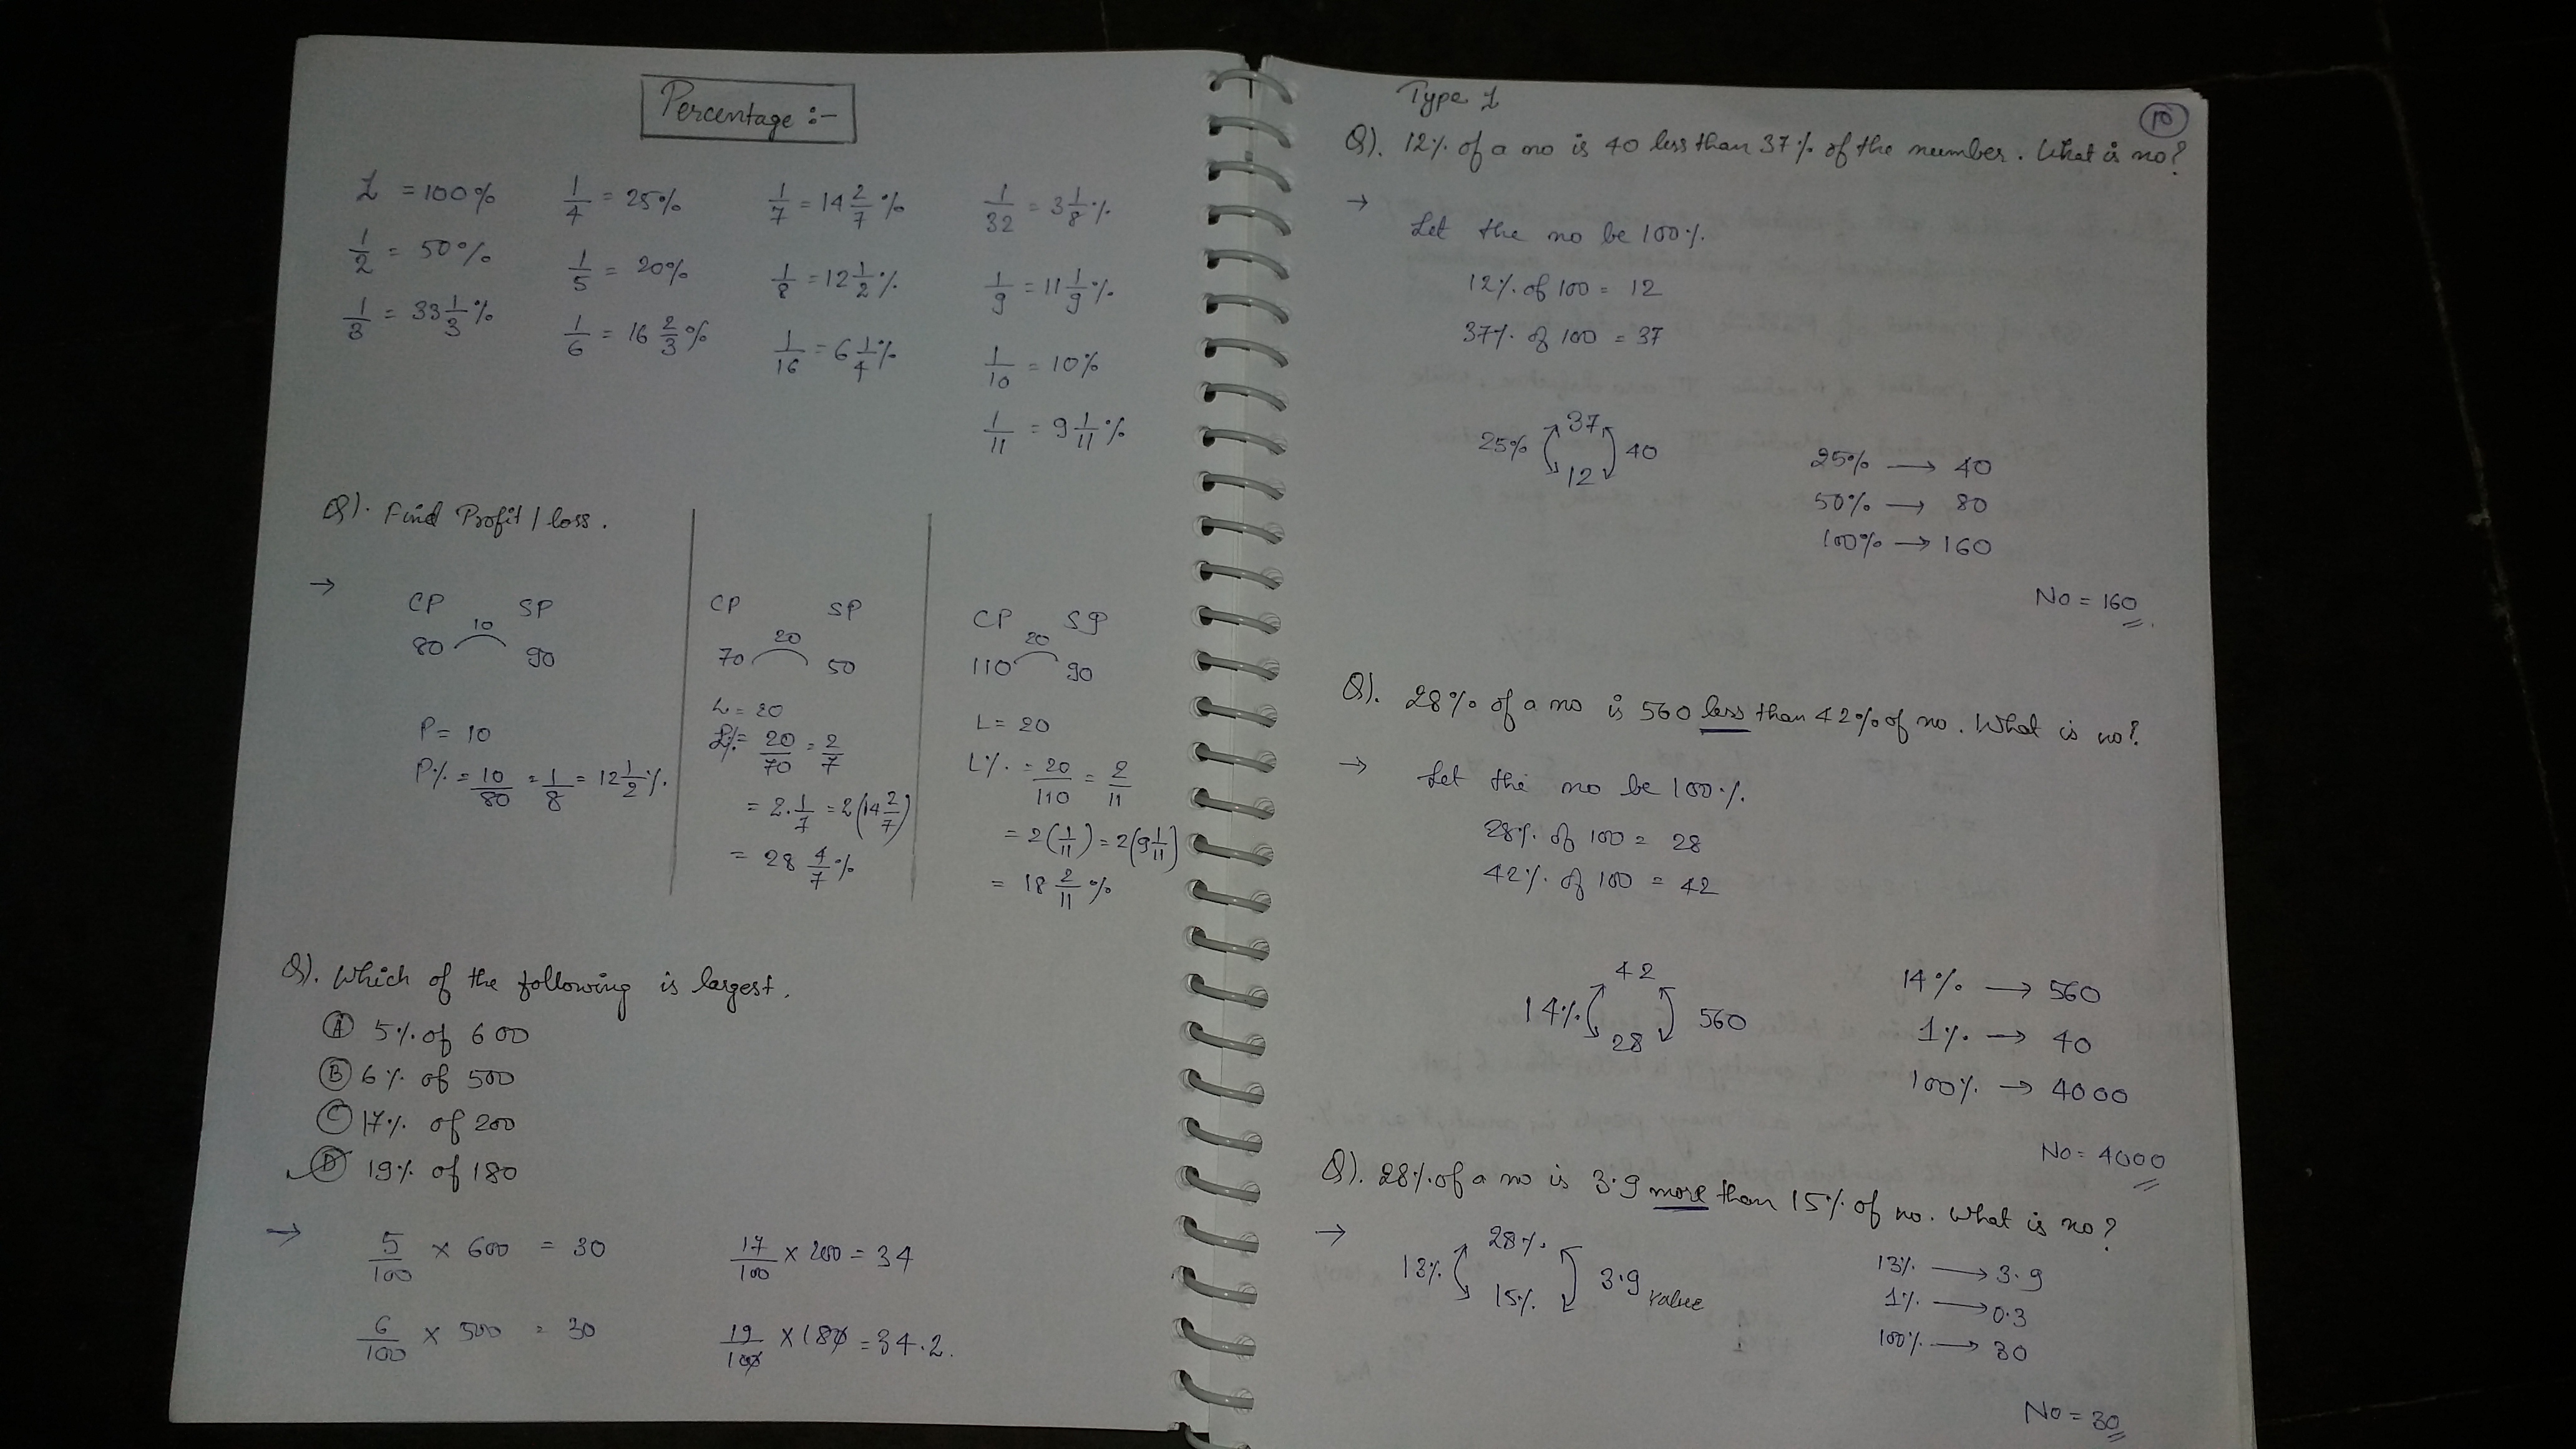 Percentage :-
1 = 100%
1/2 = 50%
1/3 = 33 1/3 %
1/4 = 25%
1/5 = 20%
1/6 = 16 2/3 %
1/7 = 14 2/7 %
1/8 = 12 1/2 %
1/16 = 6 1/4 %
1/32 = 3 1/8 %
1/9 = 11 1/9 %
1/10 = 10%
1/11 = 9 1/11 %
Q). Find Profit / loss.
→
CP SP
10
80 90
P = 10
P% = 10/80 = 1/8 = 12 1/2 %.
CP SP
20
70 50
L = 20
L% = 20/70 = 2/7
= 2. 1/7 = 2(14 2/7)
= 28 4/7 %
CP SP
20
110 90
L = 20
L% = 20/110 = 2/11
= 2(1/11) = 2(9 1/11)
= 18 2/11 %
Q). Which of the following is largest.
A 5% of 600
B 6% of 500
C 17% of 200
D 19% of 180
→ 5/100 × 600 = 30
6/100 × 500 = 30
17/100 × 200 = 34
19/100 × 180 = 34.2.
Type 1
10
Q). 12% of a no is 40 less than 37% of the number. What is no?
→
Let the no be 100%.
12% of 100 = 12
37% of 100 = 37
37
25% 40
12
25% → 40
50% → 80
100% → 160
No = 160.
Q). 28% of a no is 560 less than 42% of no. What is no?
→ Let the no be 100%.
28% of 100 = 28
42% of 100 = 42
42
14% 560
28
14% → 560
1% → 40
100% → 4000
No = 4000
Q). 28% of a no is 3.9 more than 15% of no. What is no?
→
28%
13% 3.9 value
15%
13% → 3.9
1% → 0.3
100% → 30
No = 30